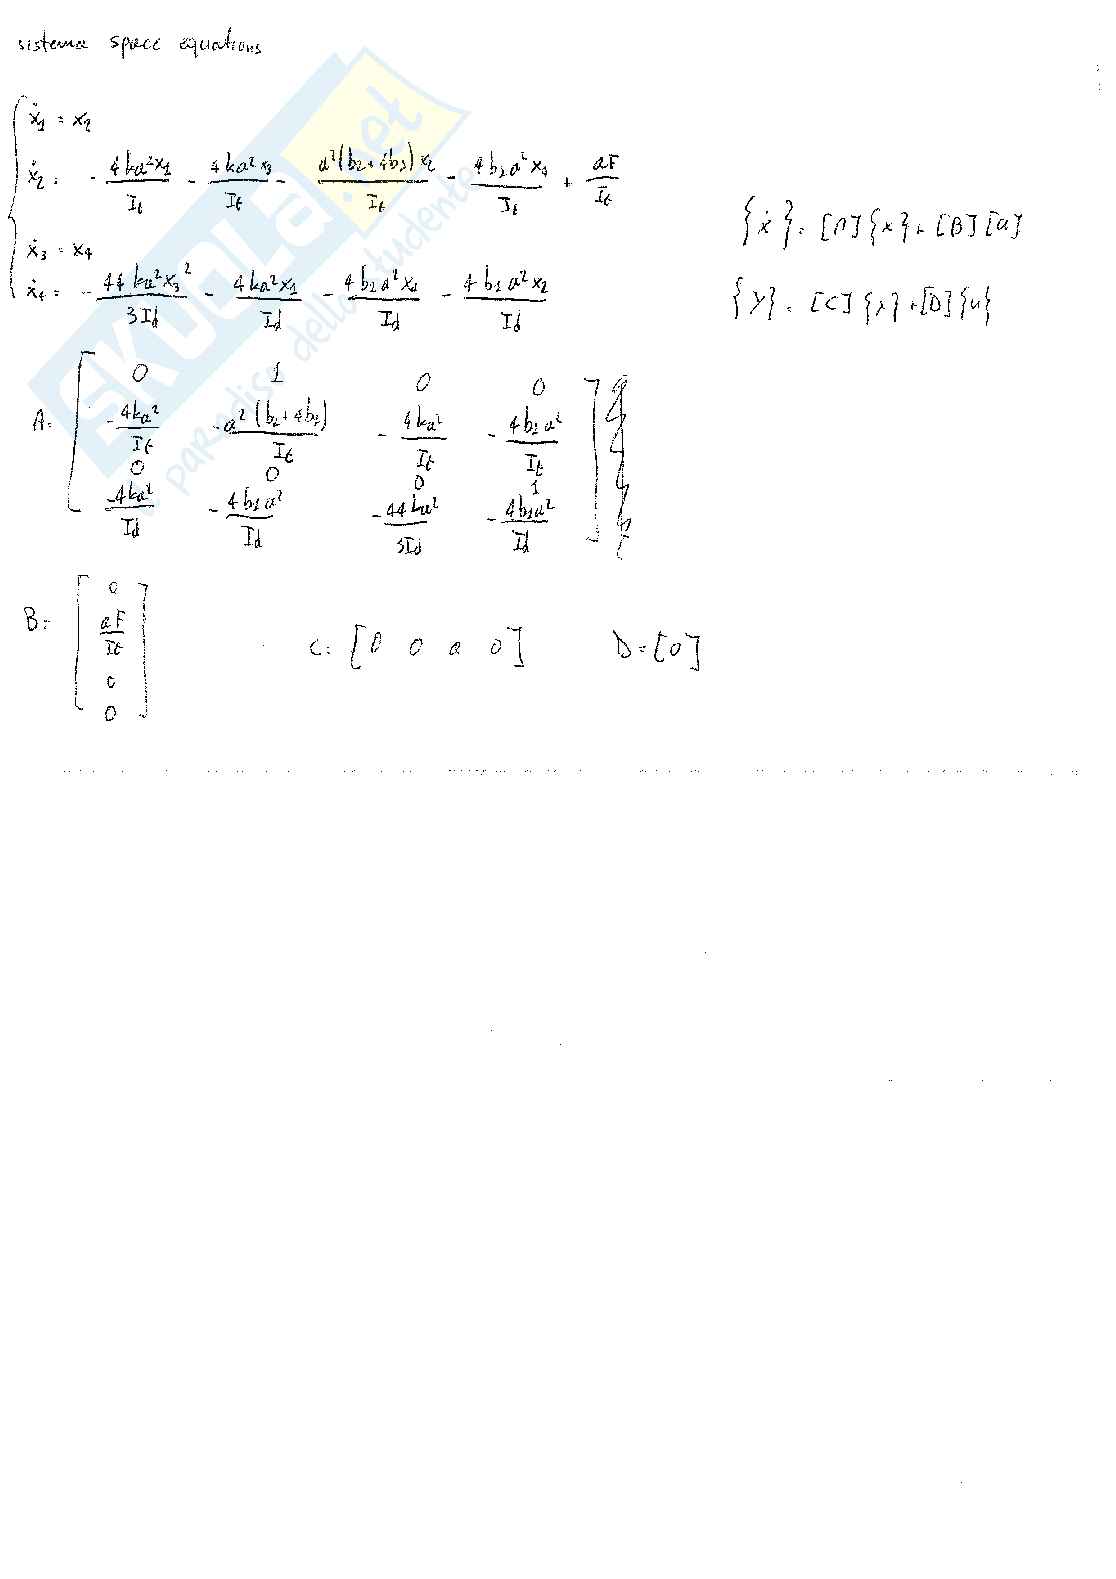 sistema space equations
ẋ1 = x2
ẋ2 = - 4ka²x1/It - 4ka²x3/It - a²(b2+4b1)x2/It - 4b1a²x4/It + aF/It
ẋ3 = x4
ẋ4 = - 44ka²x3²/3Id - 4ka²x1/Id - 4b1a²x4/Id - 4b1a²x2/Id
{ẋ} = [A]{x} + [B][u]
{y} = [C]{x} + [D]{u}
A = [ 0 1 0 0
-4ka²/It -a²(b2+4b1)/It -4ka²/It -4b1a²/It
0 0 0 1
-4ka²/Id -4b1a²/Id -44ka²/3Id -4b1a²/Id ]
B = [ 0 aF/It 0 0 ] C = [0 0 a 0] D = [0]
SKUOLA.net
paradiso dello studente